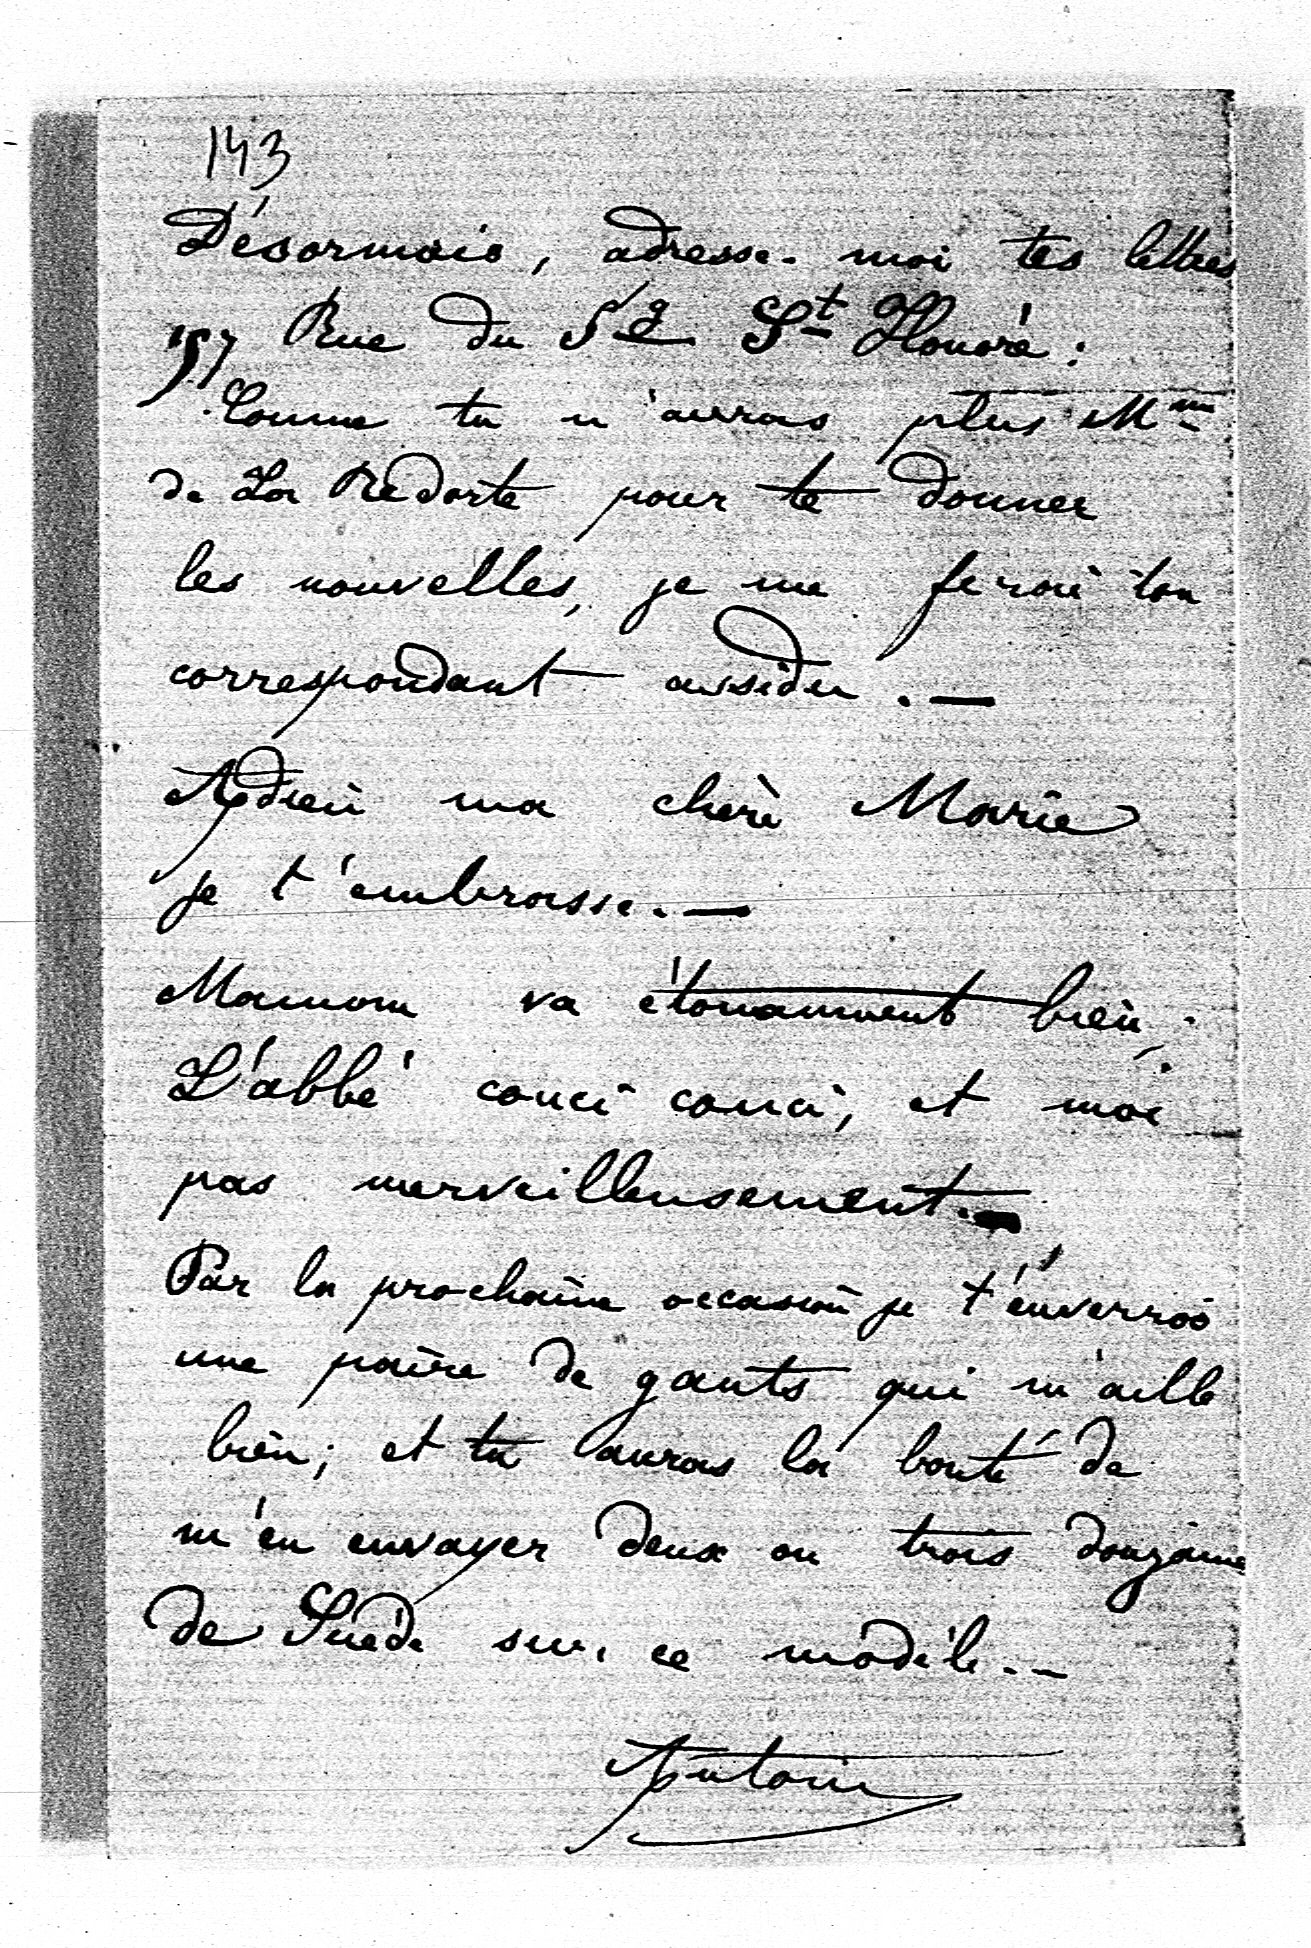 143
Désormais, adresse-moi tes lettres
157 Rue du Fg St Honoré :
Comme tu n'auras plus Mme
de La Redorte pour te donner
les nouvelles, je me ferai ton
correspondant assidu. —
Adieu ma chère Marie
je t'embrasse. —
Maman va étonamment bien ;
L'abbé couci couci, et moi
pas merveilleusement. —
Par la prochaine occasion je t'enverrai
une paire de gants qui m'aille
bien ; et tu auras la bonté de
m'en envoyer deux ou trois douzaine
de Suède sur ce modèle. —
Antoine